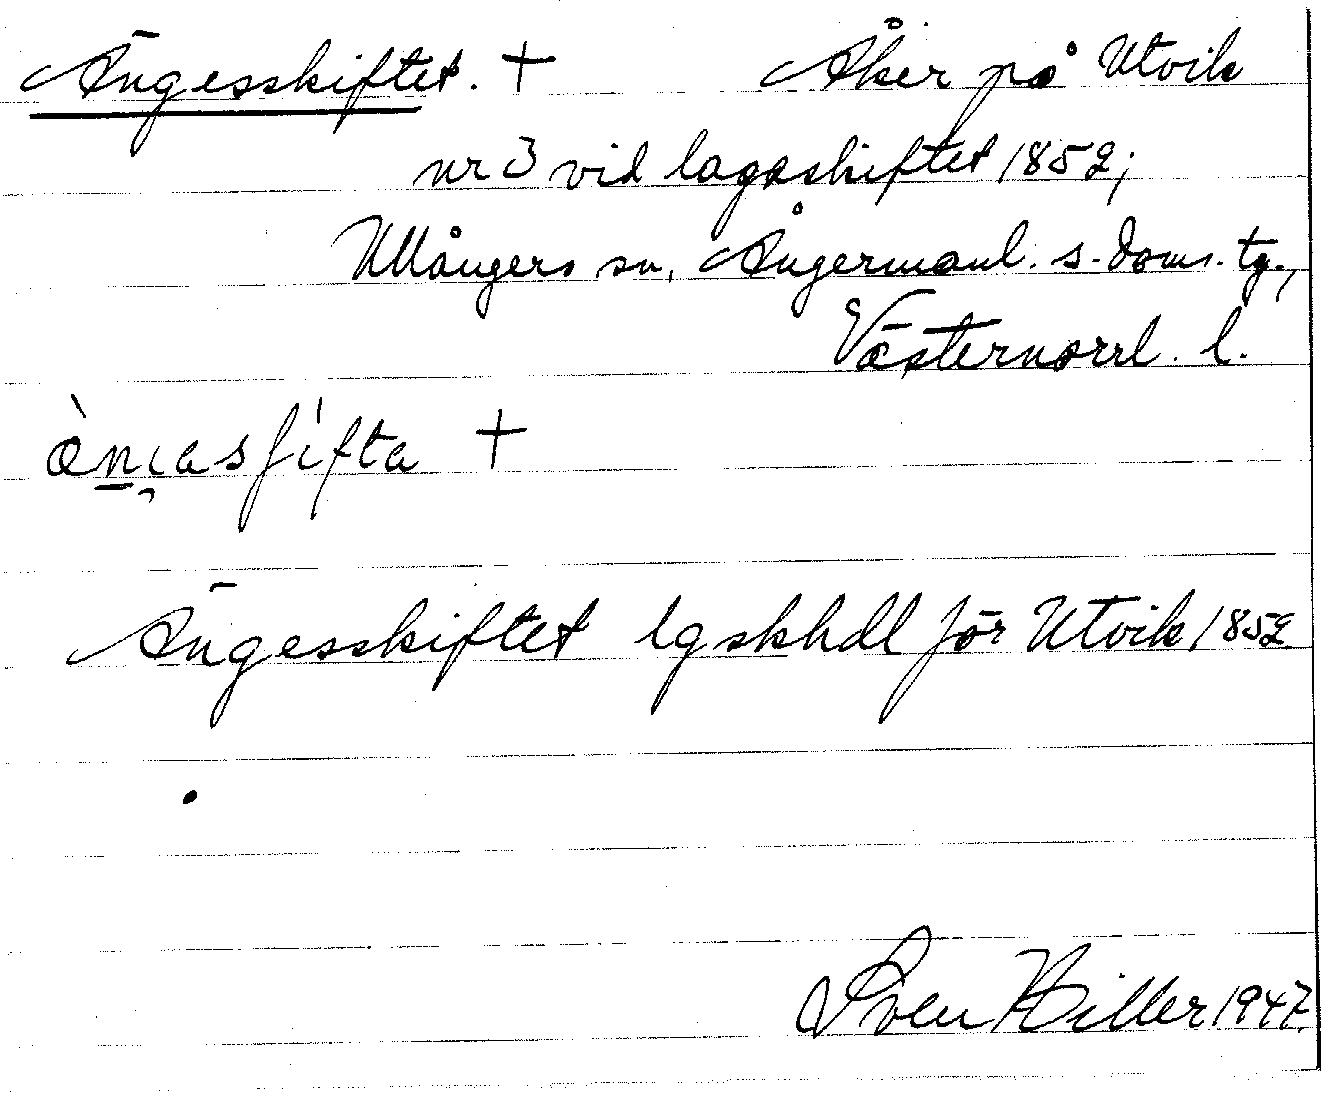 Ängesskiftet. + Åker på Utvik
nr 3 vid lagaskiftet 1852;
Ullångers sn, Ångermanl. s. doms. tg.,
Västernorrl. l.
+
Ängesskiftet lgskhdl för Utvik 1852
Sven Hiller 1947.